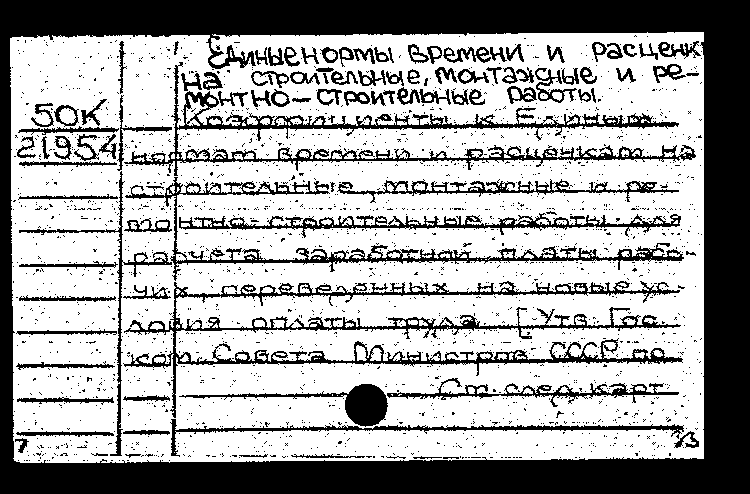 Единые нормы времени и расценки
на строительные, монтажные и ре-
монтно-строительные работы.
50К
21954
Коэффициенты к Единым
нормам времени и расценкам на
строительные, монтажные и ре-
монтно-строительные работы для
расчета заработной платы рабо-
чих, переведенных на новые ус-
ловия оплаты труда [Утв. Гос.
ком. Совета Министров СССР по
См. след. карт
7